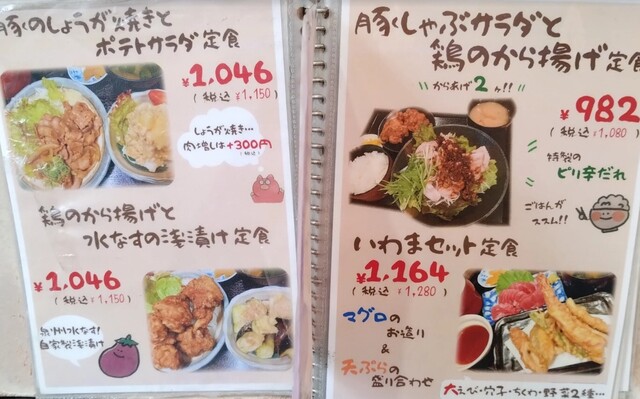 豚のしょうが焼きと
ポテトサラダ定食
¥1,046
(税込 ¥1,150)
しょうが焼き…
肉増しは+300円
(税込)
鶏のから揚げと
水なすの浅漬け定食
¥1,046
(税込 ¥1,150)
泉州水なす!
自家製浅漬け
豚しゃぶサラダと
鶏のから揚げ定食
からあげ2ヶ!!
¥982
(税込 ¥1,080)
特製の
ピリ辛だれ
ごはんが
ススム!!
いわまセット定食
¥1,164
(税込 ¥1,280)
マグロの
お造り
&
天ぷらの
盛り合わせ
大えび・穴子・ちくわ・野菜2種…